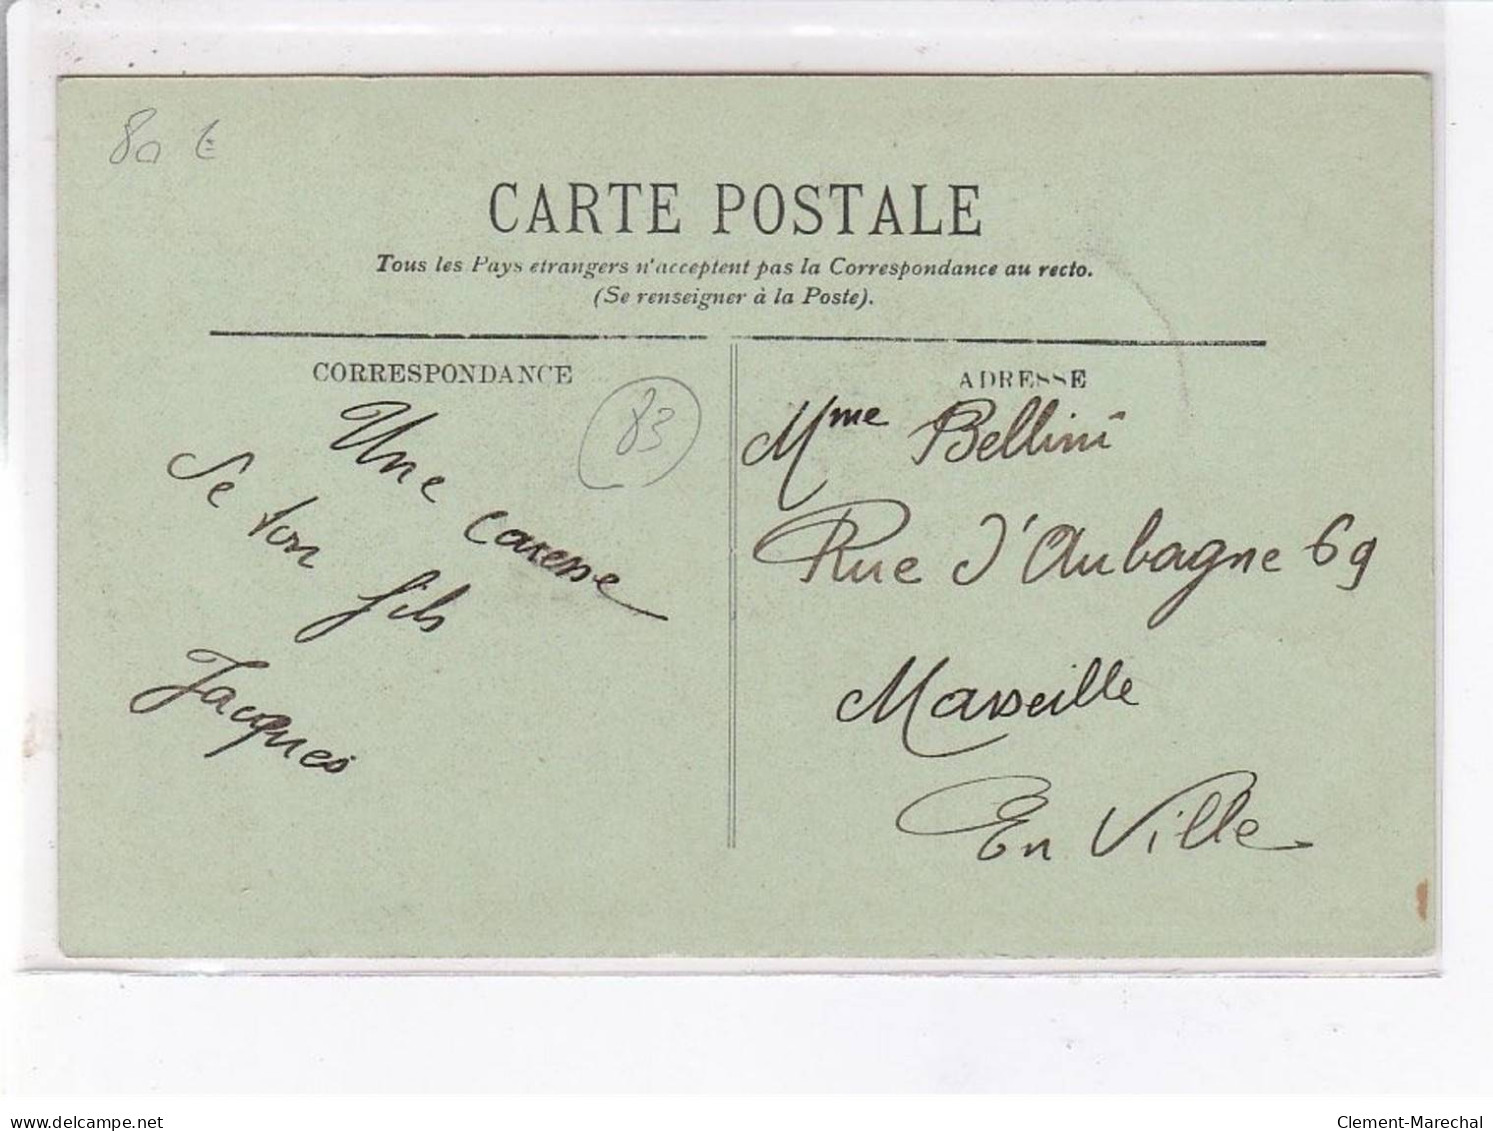 80 €
CARTE POSTALE
Tous les Pays etrangers n'acceptent pas la Correspondance au recto.
(Se renseigner à la Poste).
CORRESPONDANCE
83
Une caresse
de ton fils
Jacques
ADRESSE
Mme Bellini
Rue d'Aubagne 69
Marseille
En Ville
delcampe.net
Clement-Marechal